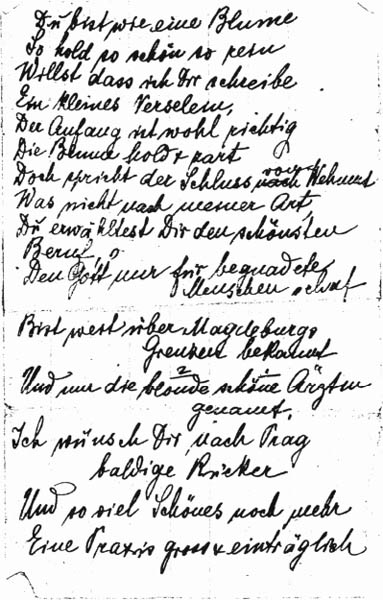 Du bist wie eine Blume
So hold so schön so rein
Willst dass ich Dir schreibe
Ein kleines Verselein,
Der Anfang ist wohl richtig
Die Blume hold + zart
Doch spricht der Schluss von nach Wehmut
Was nicht nach meiner Art,
Du erwähltest Dir den schönsten
Beruf,
Den Gott nur für begnadete
Menschen schuf
Bist weit über Magdeburgs
Grenzen bekannt
Und nur die blonde 2 schöne Ärztin
genannt.
Ich wünsch Dir, nach Prag
baldige Rückker
Und so viel Schönes noch mehr
Eine Praxis gross + einträglich